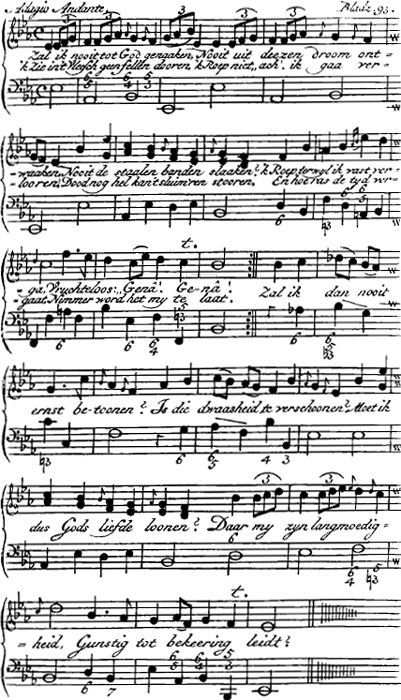 Adagio Andante. Bladz. 93.
Zal ik nooit tot God genaaken, Nooit uit deezen droom ont=
'k Zie in't Vleesch geen feilen dooren, 'k Roep niet, ach! ik gaa ver=
=waaken, Nooit de staalen banden slaaken? 'k Roep terwyl ik vast ver=
=looren, Dood nog hel kan't sluim'ren stooren. En hoe ras de tyd ver=
=ga, Vruchteloos: „Genâ! Ge-nâ!
gaat, Nimmer word het my te laat. Zal ik dan nooit
ernst be-toonen? Is die dwaasheid te verschoonen? Moet ik
dus Gods liefde loonen? Daar my zyn langmoedig=
=heid, Gunstig tot bekeering leidt?